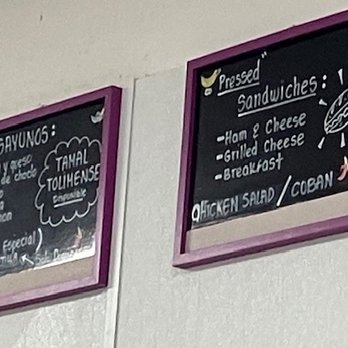 SAYUNOS:
y queso
de choclo
TAMAL
TOLIMENSE
Disponible
Especial)
"Pressed"
Sandwiches:
- Ham & Cheese
- Grilled Cheese
- Breakfast
CHICKEN SALAD / CUBAN